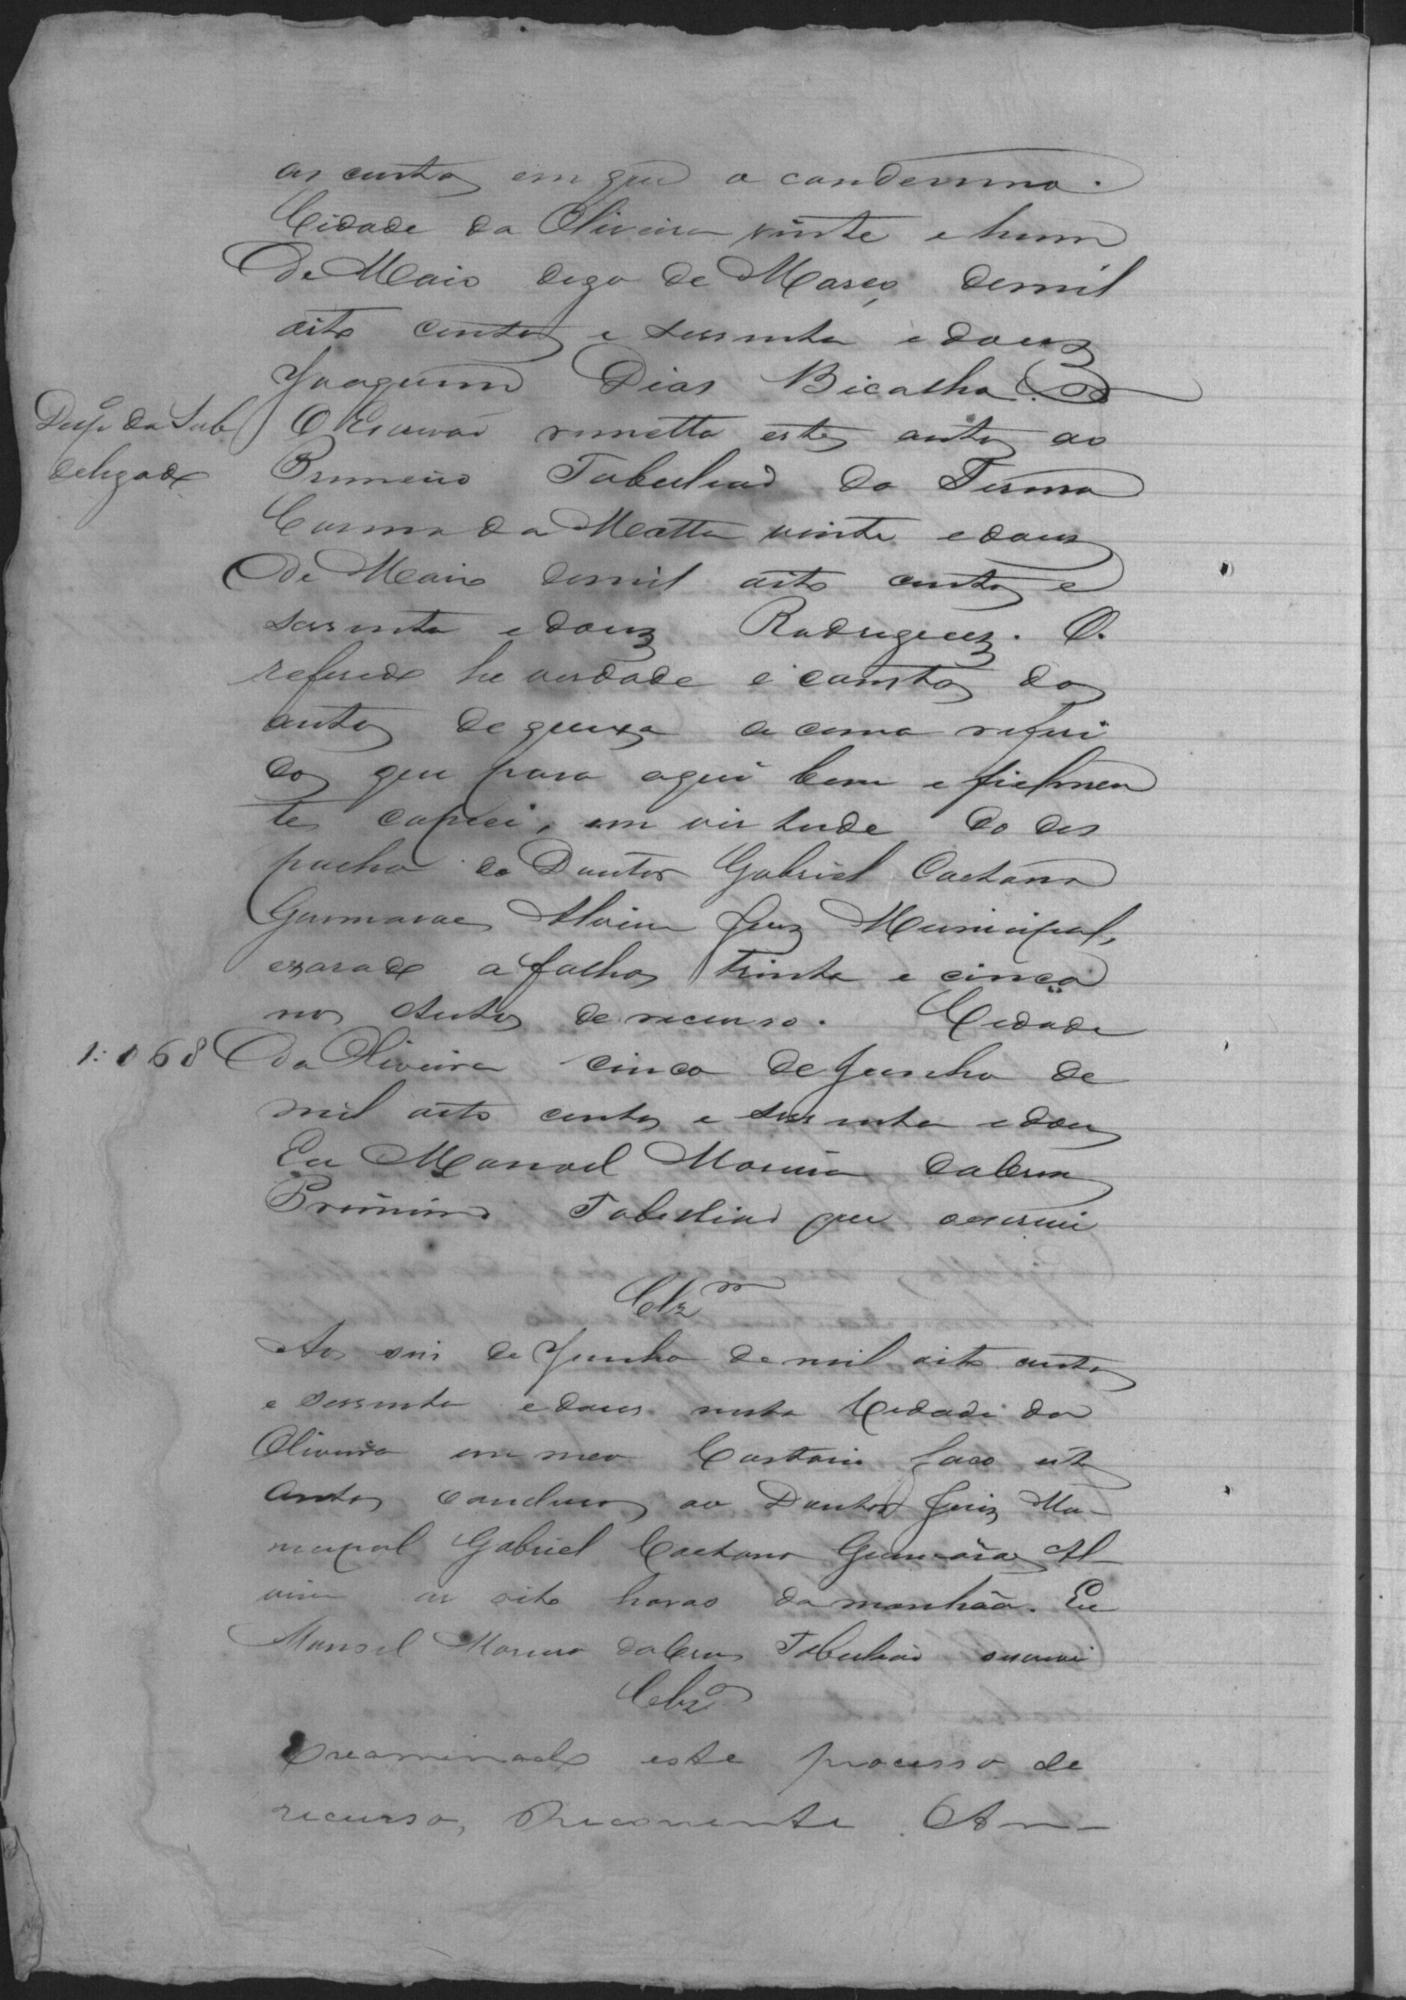 as custas em que o condemno.
Cidade da Oliveira vinte e hum
de Maio digo de Março, demil
oito centos e sessenta e dous
Joaquim Dias Bicalho.
Despº do Sub
delegado
O Escrivaõ remetta estes autos ao
Primeiro Tabeliaõ do Termo
Carmo da Matta vinte e dous
de Maio demil oito centos e
sessenta e dous Rodrigues. O
referido he verdade e consta dos
autos de queixa a cima referi
dos que para aqui bem e fielmen
te copiei, em vir tude do des
pacho do Doutor Gabriel Caetano
Guimaraes Alvim Juiz Municipal,
exarado a folhas trinta e cinco
nos Autos de recurso. Cidade
1:068
da Oliveira cinco de Junho de
mil oito centos e sessenta e dous
Eu Manoel Moreira da Crus
Primeiro Tabelliaõ que oescrevi
Clzm
Aos seis de Junho de mil oito centos
e sessenta e dous nesta Cidade da
Oliveira em meo Cartorio faco estes
autos concluzos ao Doutor Juiz Mu-
nicipal Gabriel Caetano Guimarães Al-
vim as oito horas da manhãa. Eu
Manoel Moreira da Crus Tabeliaõ escrevi
Clzo
Examinado este processo de
recurso, Recorrente An-